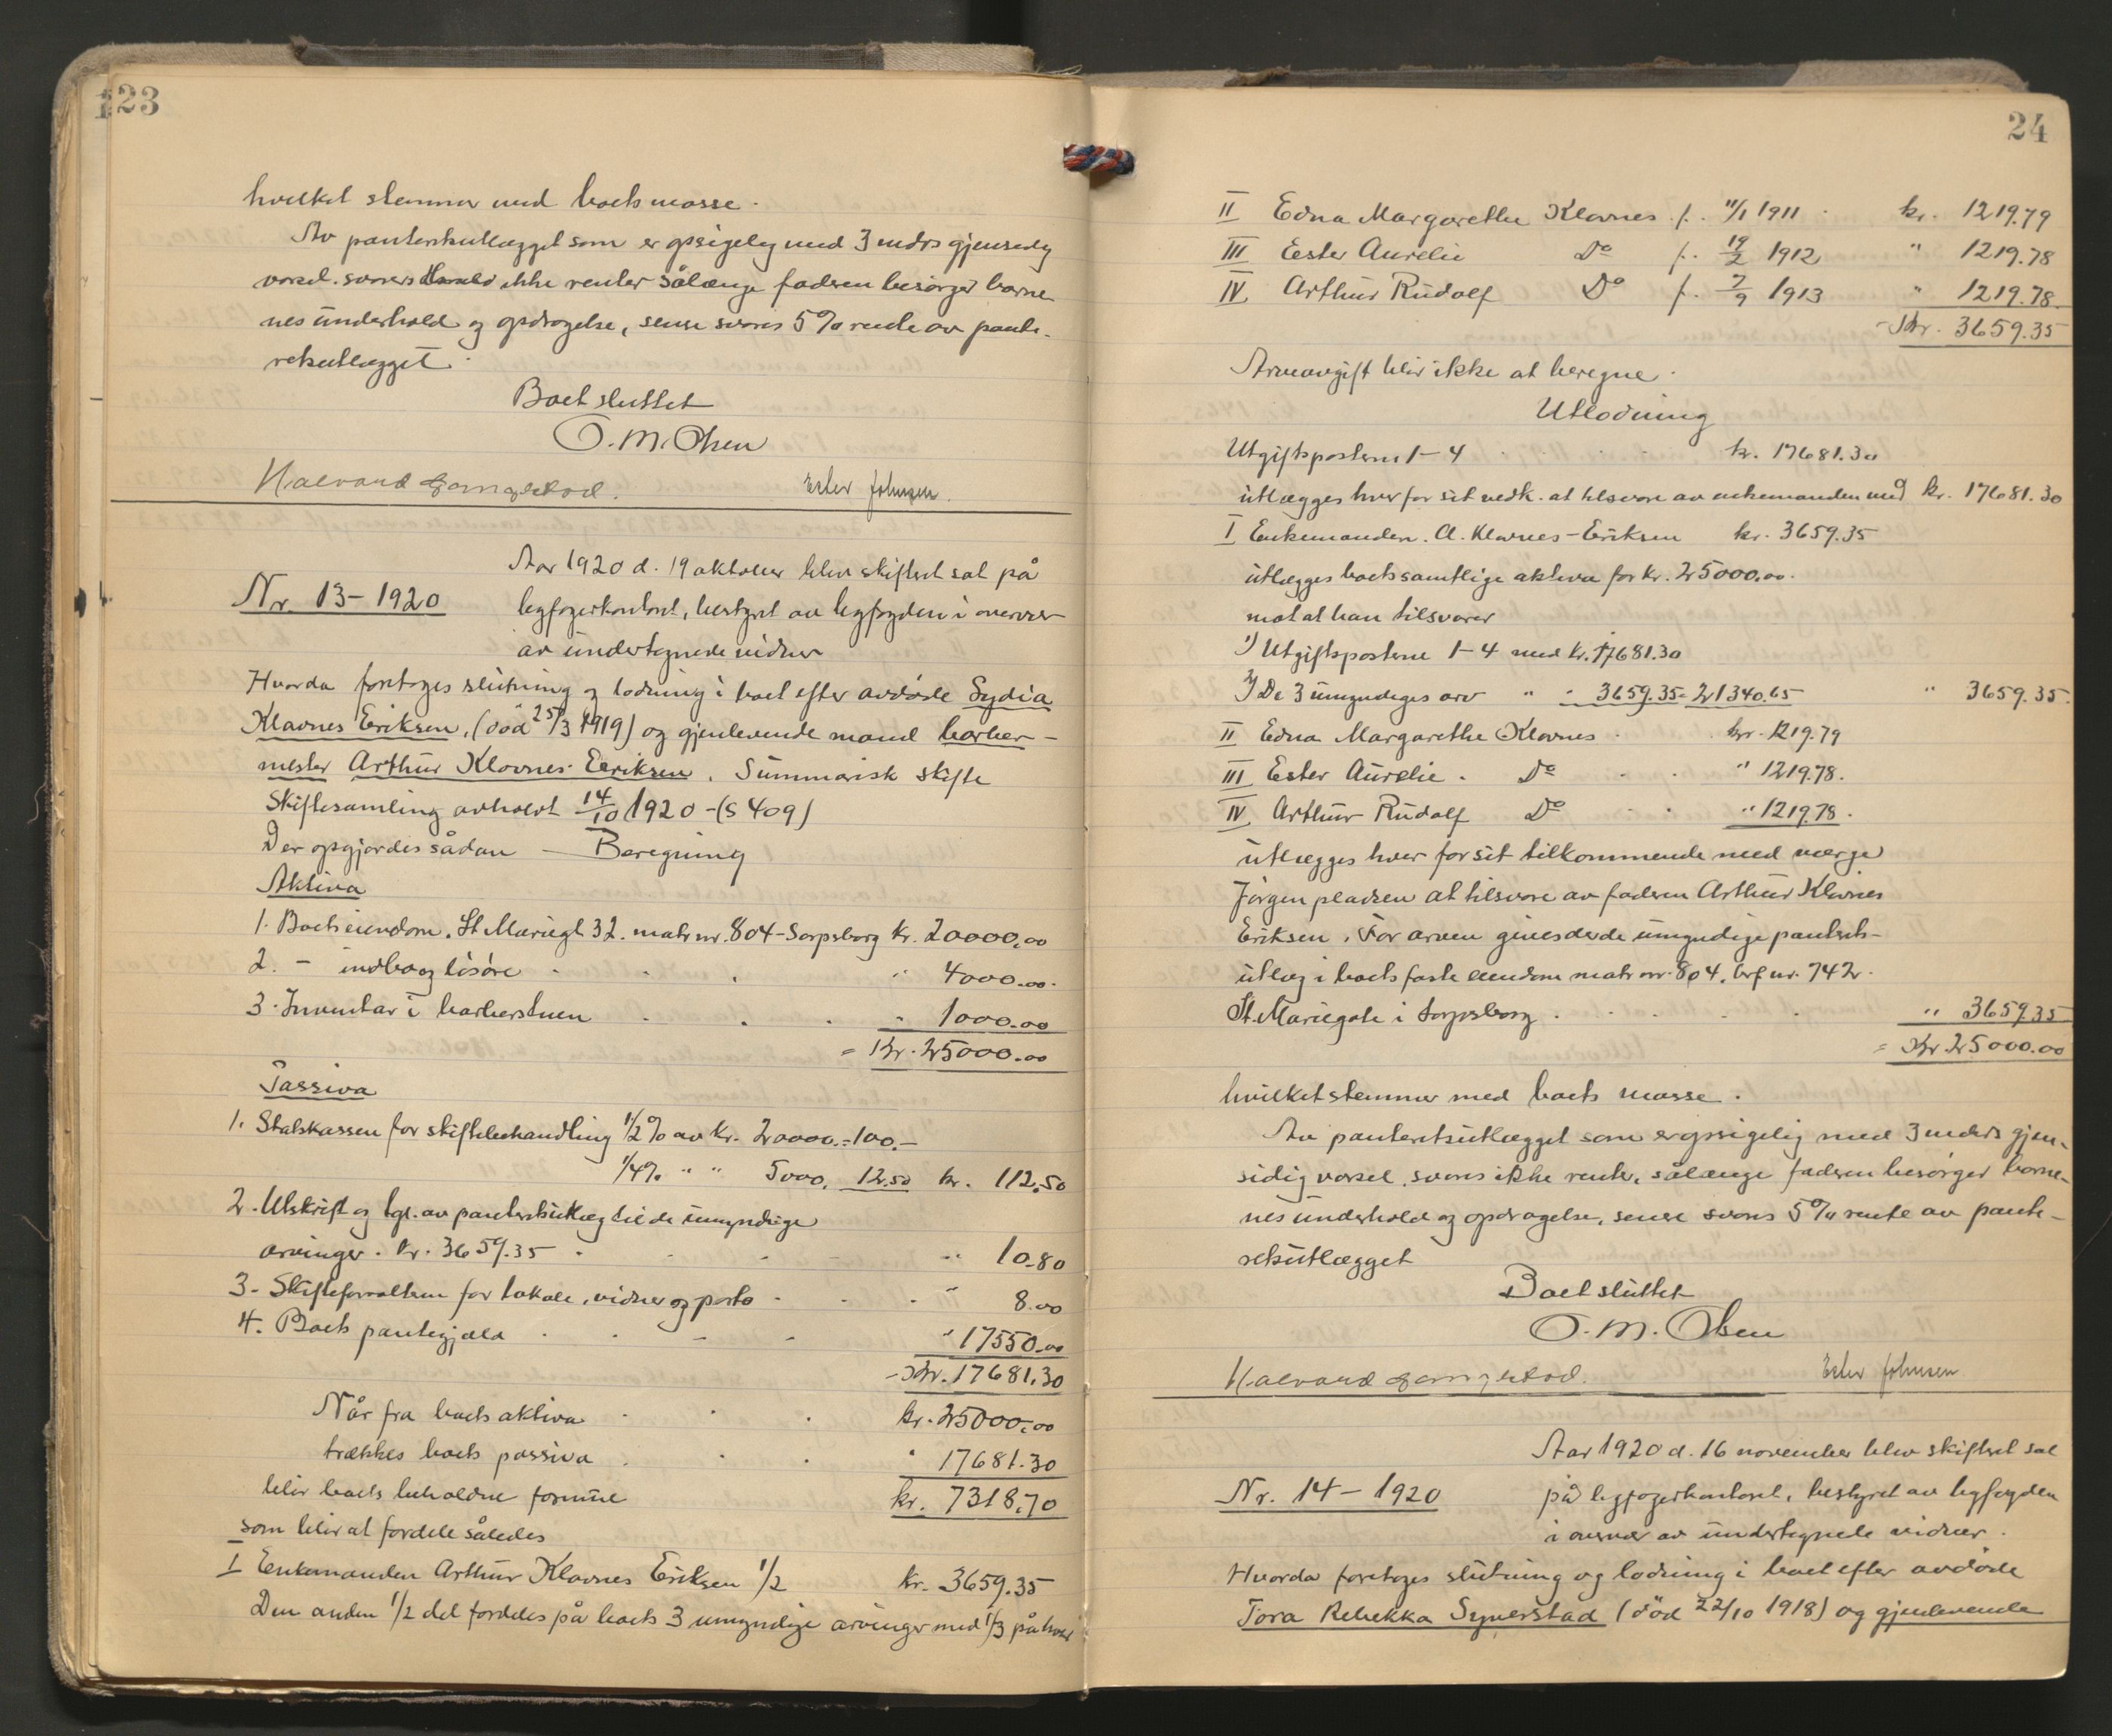 123
hvilket stemmer med boets masse.
Av panteretsutlægget som er opsigelig med 3 mdrs gjensidig
varsel. svares ikke renter sålænge faderen besørger barne
nes underhold og opdragelse, senere svares 5% rente av pante-
retsutlægget.
Boet sluttet
O. M. Olsen
Halvard Ester Johnsen.
Aar 1920 d. 19 oktober blev skifteret sat på
Nr 13-1920
byfogerkontoret, bestyret av byfogden i overvær
av undertegnede vidner
Hvorda foretoges slutning og lodning i boet efter avdøde Lydia
Klavnes Eriksen, (død 25/3 1919) og gjenlevende mand barber-
mester Arthur Klavnes-Eriksen. Summarisk skifte
Skiftesamling avholdt 14/10 1920 - (S 409)
Der opgjordes sådan — Beregning
Aktiva
1. Boets eiendom. St Mariegt 32. matr nr. 804-Sarpsborg kr. 20000,00
2. - indbo og løsøre . . . " 4000.00.
3. Inventar i barberstuen . . . " 1000.00
= Kr. 25000.00
Passiva
1. Statskassen for skiftebehandling 1/2% av kr. 20000.=100.-
1/4% " " 5000. 12.50 kr. 112.50
2. Utskrift og tgl. av panteretsutlæg til de umyndige
arvinger. kr. 3659.35 . . . " 10.80
3. Skifteforvalteren for lokale, vidner og porto . . . " 8.00
4. Boets pantegjæld . . . " 17550.00
= Kr. 17681.30
Når fra boets aktiva . . . kr. 25000.00
trækkes boets passiva . . . " 17681.30
blir boets beholdne formue kr. 7318.70
som blir at fordele således
I Enkemanden Arthur Klavnes Eriksen 1/2 kr. 3659.35
Den anden 1/2 del fordeles på boets 3 umyndige arvinger med 1/3 på hver
24
II Edna Margarethe Klavnes f. 11/1 1911 . kr. 1219.79
III Ester Aurelie Do f. 19/2 1912 " 1219.78
IV Arthur Rudolf Do f. 7/9 1913 " 1219.78.
= Kr. 3659.35
Arveavgift blir ikke at beregne.
Utlodning
Utgiftsposterne 1-4 . . . kr. 17681.30
utlægges hver for sit vedk. at tilsvare av enkemanden med kr. 17681.30
I Enkemanden. A. Klavnes-Eriksen kr. 3659.35
utlægges boets samtlige aktiva for kr. 25000.00.
mot at han tilsvarer
1) Utgiftsposterne 1-4 med kr. 17681.30
2) De 3 umyndiges arv " " 3659.35 = 21340.65 " 3659.35.
II Edna Margarethe Klavnes . . kr. 1219.79
III Ester Aurelie . Do . . " 1219.78.
IV Arthur Rudolf Do . . " 1219.78.
utlægges hver for sit tilkommende med værge
Jørgen pladsen at tilsvare av faderen Arthur Klavnes
Eriksen. For arven gives de umyndige panterets-
utlæg i boets faste eiendom matr nr. 804. brf nr. 742.
St. Mariegate i Sarpsborg . . . . " 3659.35
= Kr 25000.00
hvilket stemmer med boets masse.
Av panteretsutlægget som er opsigelig med 3 mdrs gjen-
sidig varsel. svares ikke renter, sålænge faderen besørger barne-
nes underhold og opdragelse, senere svares 5% rente av pante-
retsutlægget
Boet sluttet
O. M. Olsen
Halvard Ester Johnsen
Aar 1920 d. 16 november blev skifteret sat
Nr. 14-1920
på byfogerkontoret, bestyret av byfogden
i overvær av undertegnede vidner.
Hvorda foretoges slutning og lodning i boet efter avdøde
Tora Rebekka Synerstad (død 22/10 1918) og gjenlevende